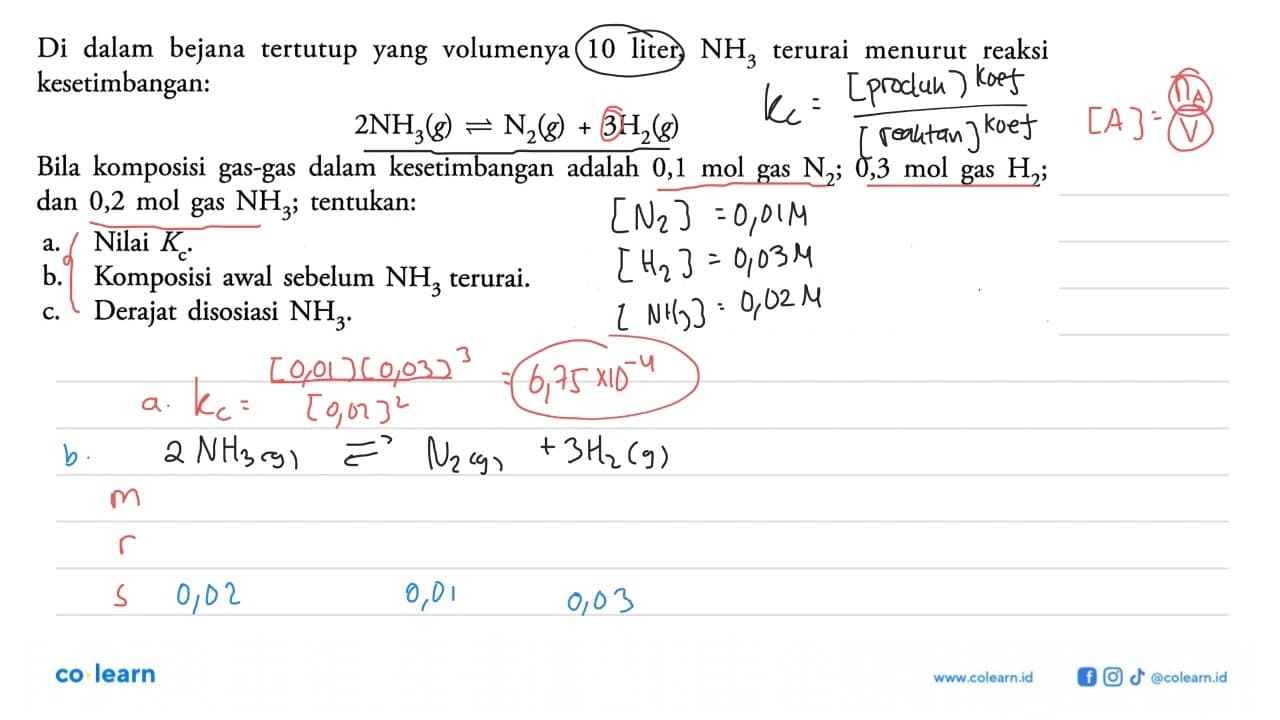 Di dalam bejana tertutup yang volumenya 10 liter, NH₃ terurai menurut reaksi
kesetimbangan:
2NH₃(g) ⇌ N₂(g) + 3H₂(g)
kc = [produk]^koef / [reaktan]^koef
[A] = nA / V
Bila komposisi gas-gas dalam kesetimbangan adalah 0,1 mol gas N₂; 0,3 mol gas H₂;
dan 0,2 mol gas NH₃; tentukan:
a. Nilai K꜀.
b. Komposisi awal sebelum NH₃ terurai.
c. Derajat disosiasi NH₃.
[N₂] = 0,01 M
[H₂] = 0,03 M
[NH₃] = 0,02 M
a. kc = [0,01][0,03]³ / [0,02]² = 6,75 × 10⁻⁴
b. 2 NH₃(g) ⇌ N₂(g) + 3H₂(g)
m
r
s 0,02 0,01 0,03
co learn
www.colearn.id
@colearn.id